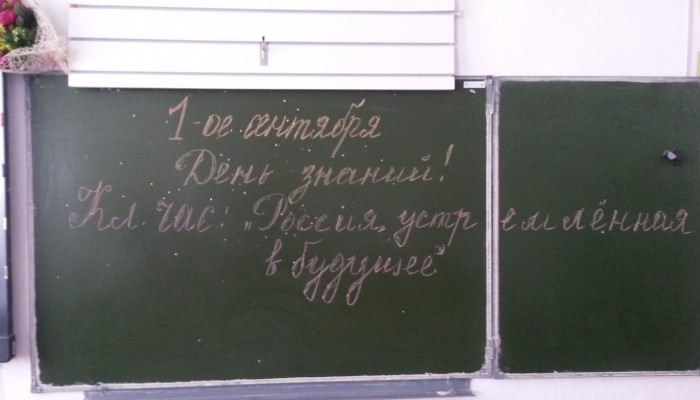 1-ое сентября
День знаний!
Кл. час: „Россия, устремлённая
в будущее"